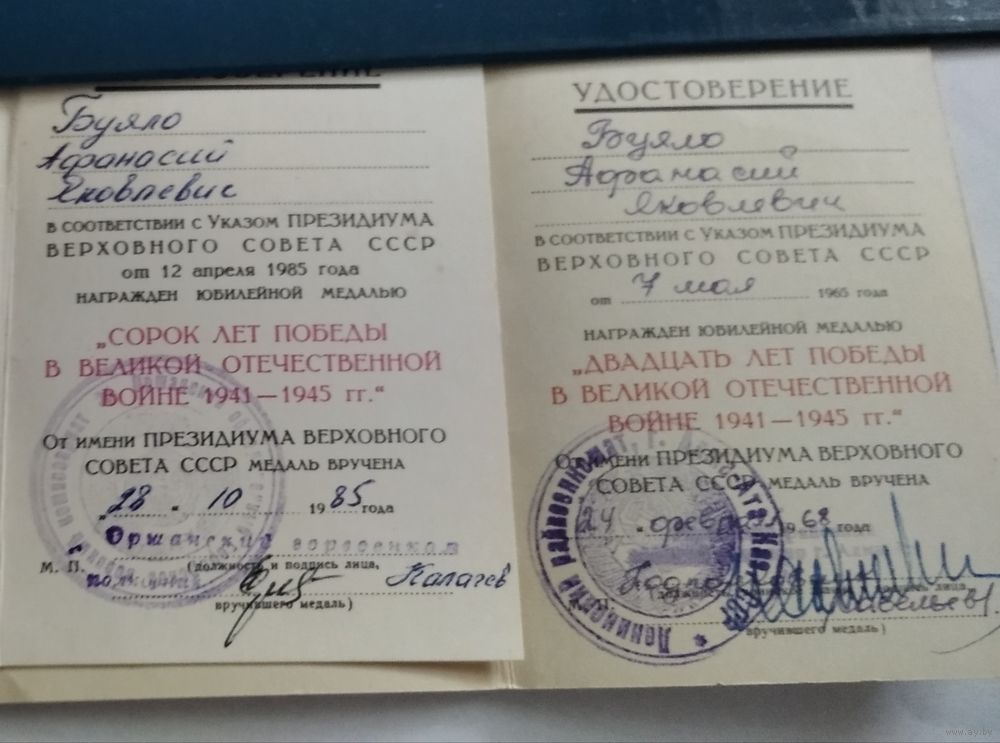 УДОСТОВЕРЕНИЕ
Буяло
Афанасий
Яковлевич
В СООТВЕТСТВИИ С УКАЗОМ ПРЕЗИДИУМА
ВЕРХОВНОГО СОВЕТА СССР
от 12 апреля 1985 года
НАГРАЖДЕН ЮБИЛЕЙНОЙ МЕДАЛЬЮ
„СОРОК ЛЕТ ПОБЕДЫ
В ВЕЛИКОЙ ОТЕЧЕСТВЕННОЙ
ВОЙНЕ 1941—1945 гг.“
ОТ ИМЕНИ ПРЕЗИДИУМА ВЕРХОВНОГО
СОВЕТА СССР МЕДАЛЬ ВРУЧЕНА
„28 „ 10 1985 года
Оршанский горвоенком
М. П. (должность и подпись лица,
полковник Калачев
вручившего медаль)
УДОСТОВЕРЕНИЕ
Буяло
Афанасий
Яковлевич
В СООТВЕТСТВИИ С УКАЗОМ ПРЕЗИДИУМА
ВЕРХОВНОГО СОВЕТА СССР
от 7 мая 1965 года
НАГРАЖДЕН ЮБИЛЕЙНОЙ МЕДАЛЬЮ
„ДВАДЦАТЬ ЛЕТ ПОБЕДЫ
В ВЕЛИКОЙ ОТЕЧЕСТВЕННОЙ
ВОЙНЕ 1941—1945 гг.“
ОТ ИМЕНИ ПРЕЗИДИУМА ВЕРХОВНОГО
СОВЕТА СССР МЕДАЛЬ ВРУЧЕНА
24 „ 1968 года
вручившего медаль)
Ленинский райвоенкомат, г.
www.ay.by